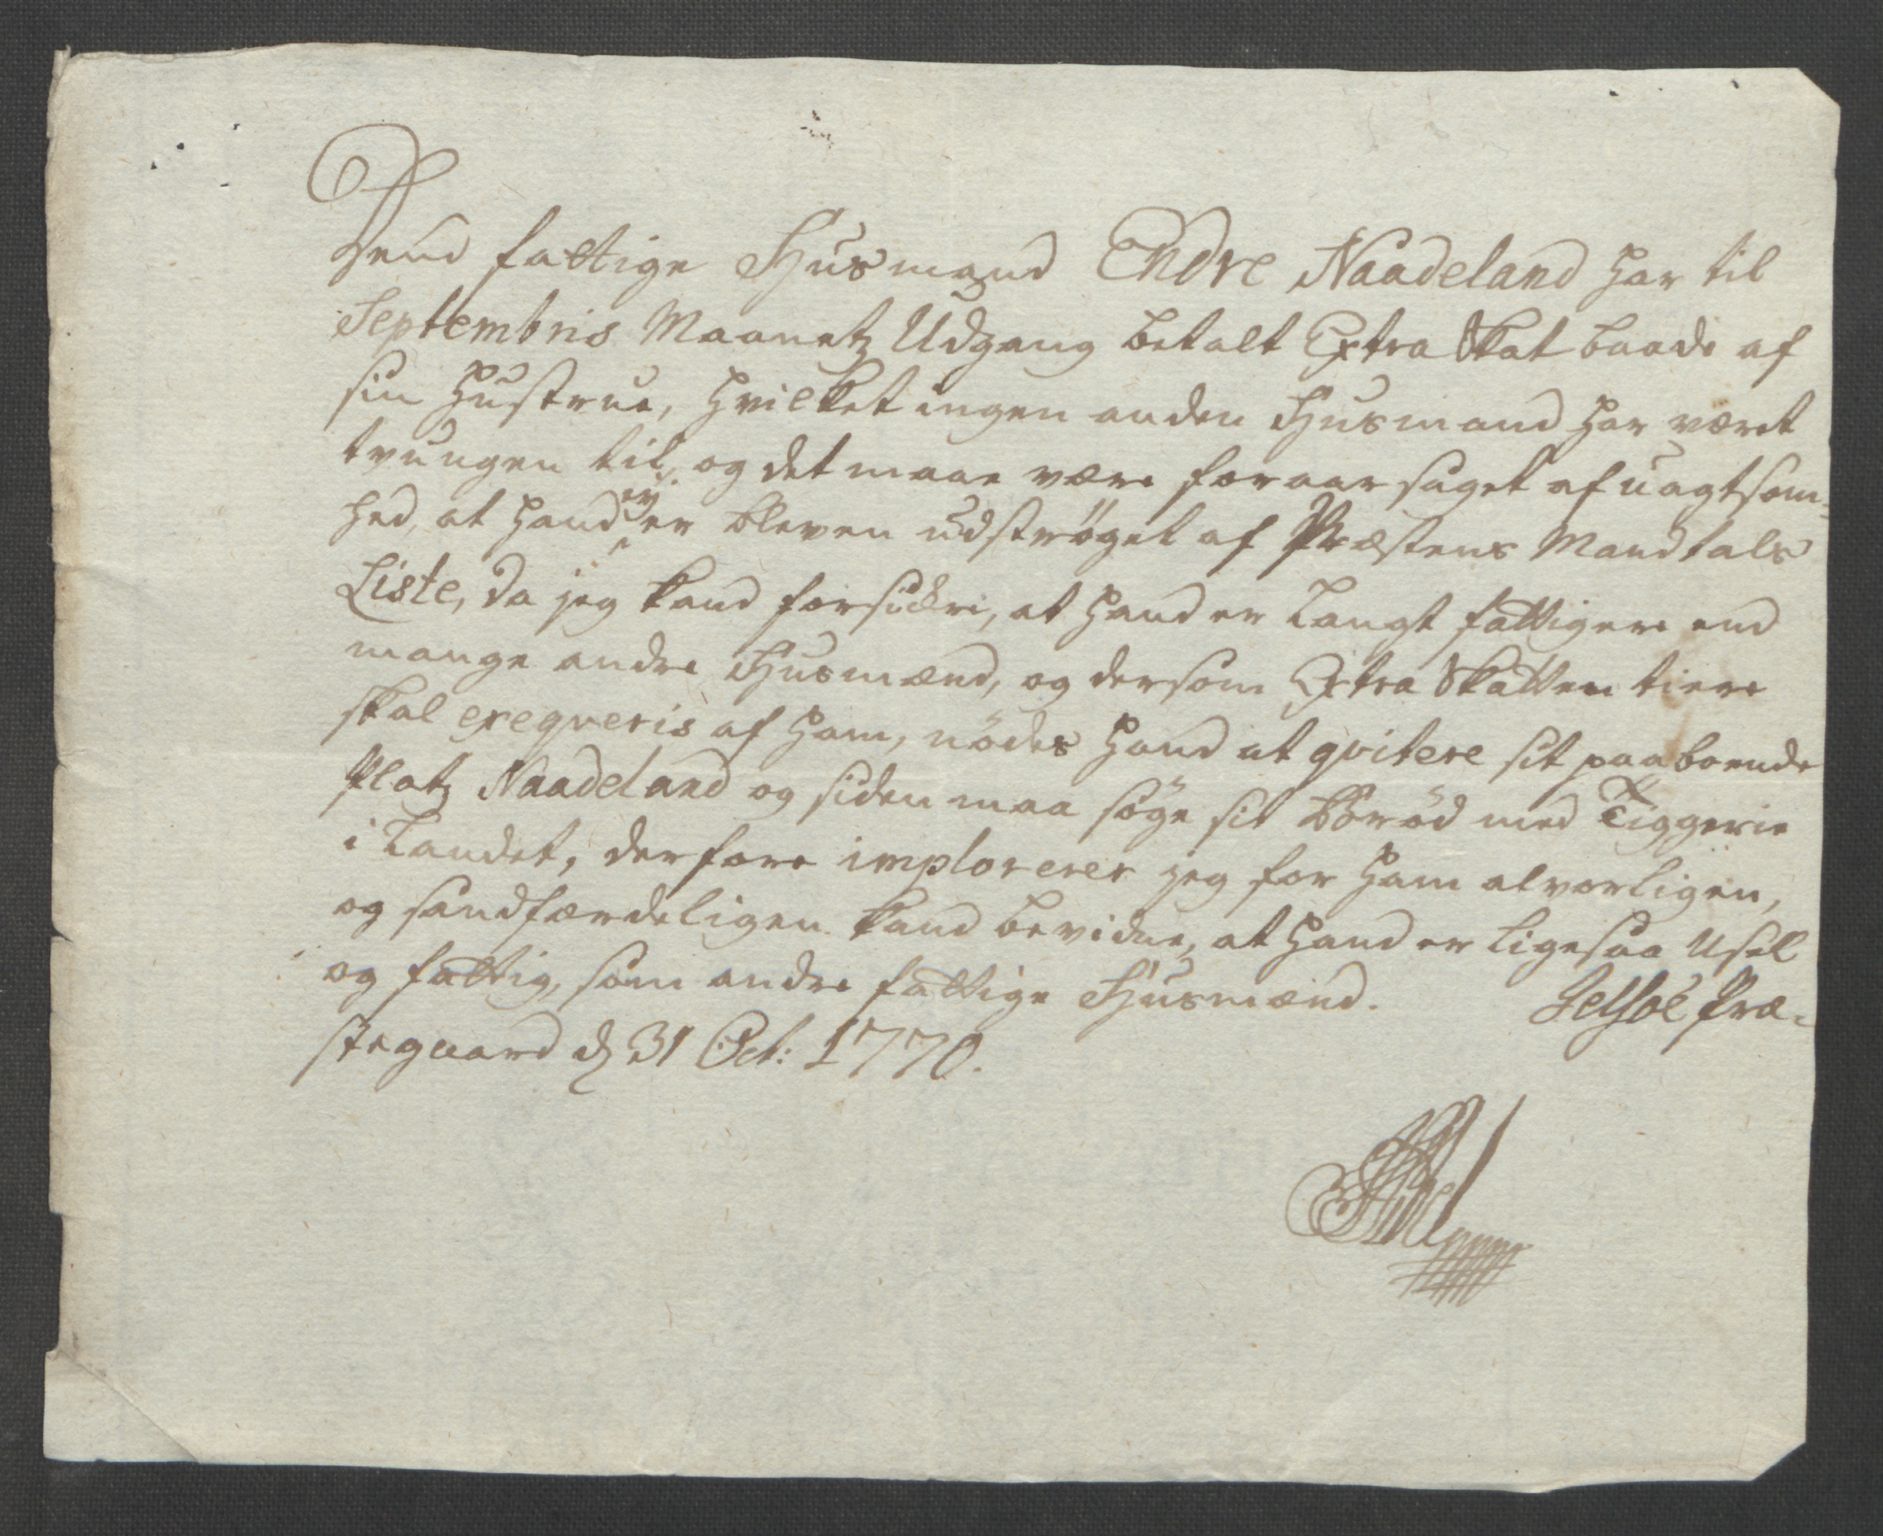 Dend fattige Husmand Endre Naadeland har til
Septembris Maanetz Udgang betalt Extra Skat baade af
sin Hustrue, hvilket ingen anden Husmand har været
tvungen til, og det maae være foraarsaget af uagtsom-
hed, at hand ey er bleven udstrøget af Præstens Mandtals
Liste, da jeg kand forsickre, at hand er langt fattigere end
mange andre Husmænd, og dersom Extra Skatten tiere
skal exeqveris af ham, nødes hand at qvitere sit paaboende
Platz Naadeland og siden maa søge sit Brød med Tiggerie
i Landet, derfore implorerer jeg for ham alvorligen,
og sandfærdeligen kand bevidne, at hand er ligesaa Usel
og fattig, som andre fattige Husmænd. Jelsøe Præ-
steguaard d 31 Oct: 1770.